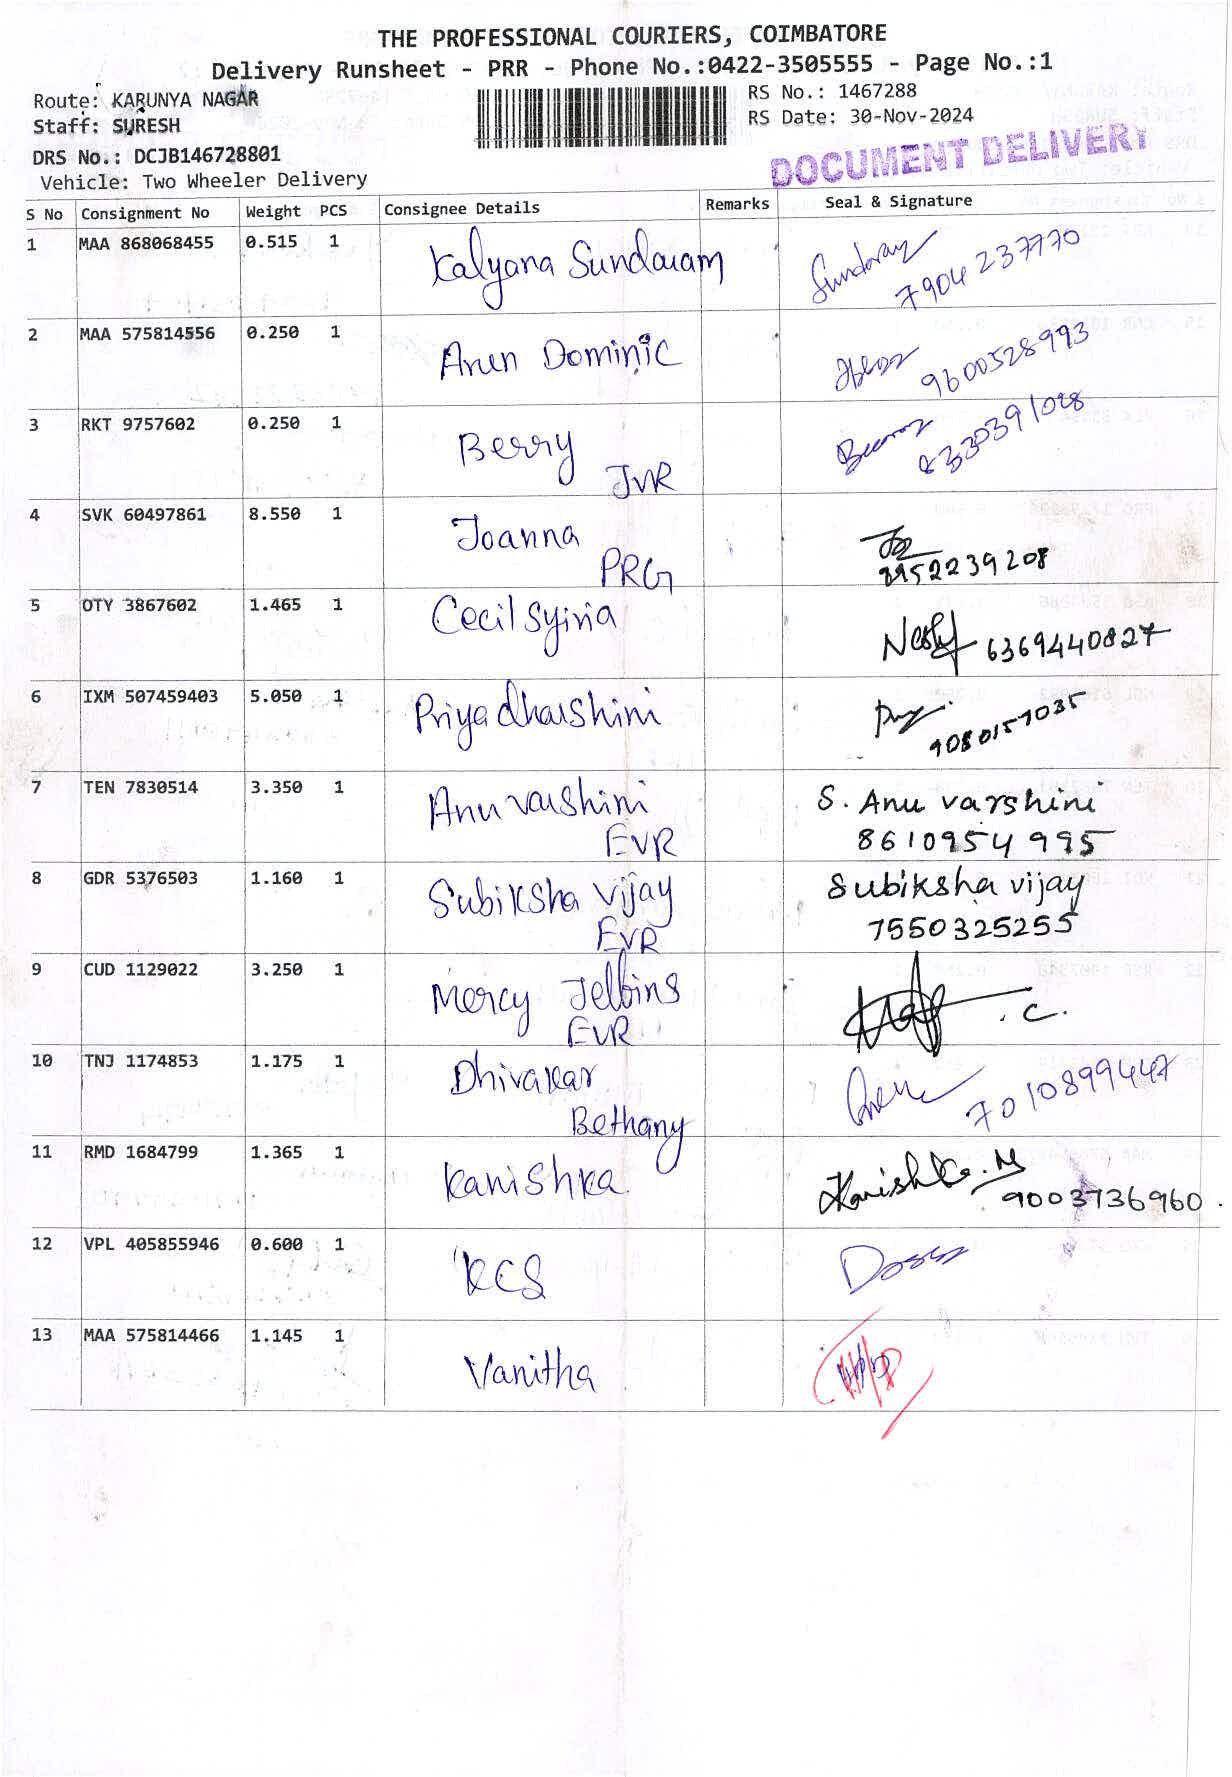 THE PROFESSIONAL COURIERS, COIMBATORE
Delivery Runsheet - PRR - Phone No.:0422-3505555 - Page No.:1
Route: KARUNYA NAGAR RS No.: 1467288
Staff: SURESH RS Date: 30-Nov-2024
DRS No.: DCJB146728801 DOCUMENT DELIVERY
Vehicle: Two Wheeler Delivery
S No Consignment No Weight PCS Consignee Details Remarks Seal & Signature
1 MAA 868068455 0.515 1 Kalyana Sundaram
7904 237770
2 MAA 575814556 0.250 1 Arun Dominic
9600528993
3 RKT 9757602 0.250 1 Berry
JVR
4 SVK 60497861 8.550 1 Joanna
PRG
5 OTY 3867602 1.465 1 Cecil
6369440827
6 IXM 507459403 5.050 1 Priyadharshini
9080157035
7 TEN 7830514 3.350 1 Anuvarshini S. Anu varshini
EVR 8610954 995
8 GDR 5376503 1.160 1 Subiksha Vijay Subiksha vijay
EVR 7550325255
9 CUD 1129022 3.250 1 Mercy Jelbins
EVR
10 TNJ 1174853 1.175 1 Dhivakar
Bethany 7010899447
11 RMD 1684799 1.365 1 Kanishka Kanishka. M
9003736960
12 VPL 405855946 0.600 1 KCS
13 MAA 575814466 1.145 1 Vanitha